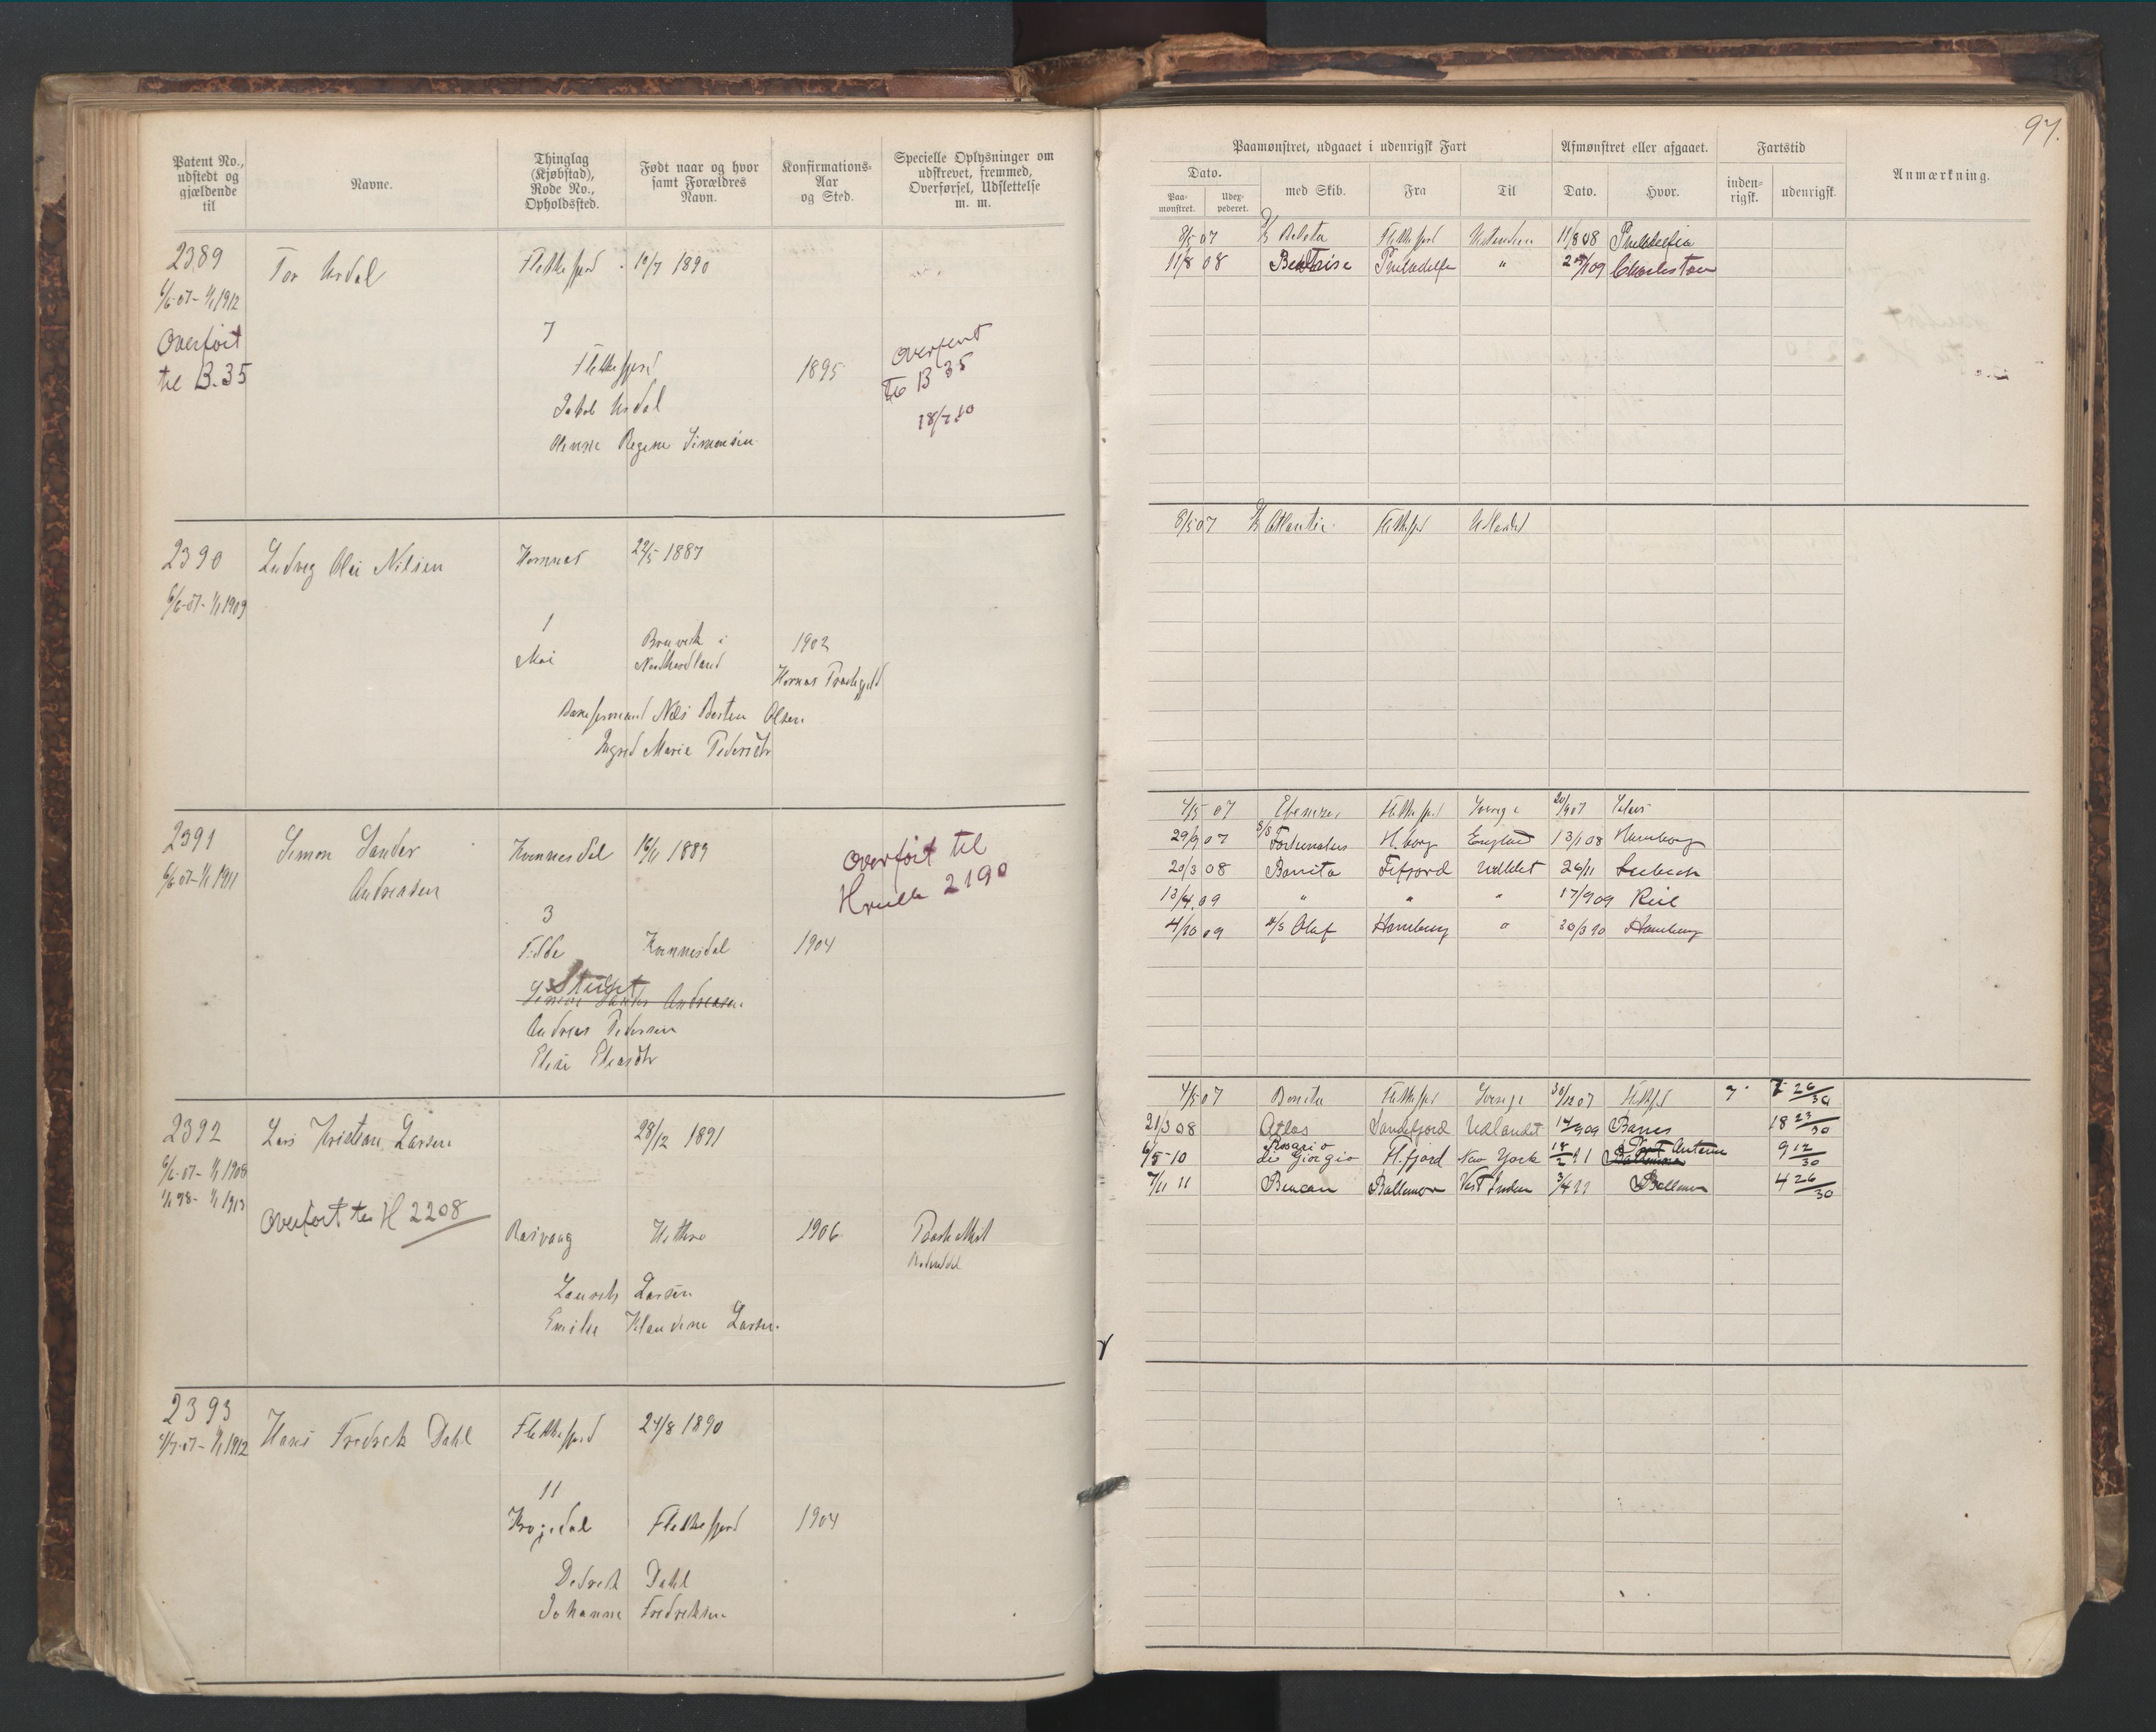 97.
Patent No., udstedt og gjældende til
Navne.
Thinglag (Kjøbstad), Rode No., Opholdssted.
Født naar og hvor samt Forældres Navn.
Konfirmations-Aar og Sted.
Specielle Oplysninger om udskrevet, fremmed, Overførsel, Udslettelse m. m.
Paamønstret, udgaaet i udenrigsk Fart
Afmønstret eller afgaaet.
Fartstid
Anmærkning.
Dato.
med Skib.
Fra
Til
Dato.
Hvor.
inden-rigsk.
udenrigsk.
Paa-mønstret.
Udex-pederet.
2389
Tor Urdal
Flekkefjord
10/7 1890
6/6-07-1/1 1912
Overført
til B.35
7
Flekkefjord
1895
Overført
til B 35
18/7 10
Jakob Urdal
Regine Simonsen
8/5 07 Flekkefjord 11/8 08
11/8 08 Philadelfia " 09 Charleston
2390
Ludvig Olai Nilsen
Hornnes
22/5 1887
6/6-07-1/1 1909
1
Moi
Bruvik i
Nordhordland
1902
Hornnes
Nils Berten Olsen
Ingrid Marie Pedersdtr
8/5 07 Atlantic Flekkefjord Udlandet
2391
Simon Sander
Andreasen
Kvinnesdal
16/11 1889
6/6 07-1/1 1911
Overført til
Hvidb 2190
3
Fedde
Kvinnesdal
1904
Slettet
Simon Sander Andreasen
Andreas Pedersen
Elise Eliasdtr
4/5 07 Ebenezer Flekkefjord Sverige 20/9 07
29/9 07 S/S Fortunatus H.borg England 13/1 08 Hamborg
20/3 08 Bonita Fefjord Udlandet 26/11 Lübeck
13/4 09 " " " 17/9 09 Kiel
4/10 09 S/S Olaf Hamburg " 30/3 10 Hamburg
2392
Lars Kristian Larsen
28/12 1891
6/6-07-1/1 1908
1/1 98-1/1 1913
Overført til H 2208
Rasvaag
Hitterø
1906
Lauritz Larsen
Emilie Klaudine Larsen
4/5 07 Bonita Flekkefjord Sverige 30/12 07 Flekkefjord 7 7 26/30
21/3 08 Atlas Sandefjord Udlandet 14/9 09 Barry 18 23/30
6/5-10 Rosario di Giorgio Fl.fjord New York 18/2 11 Port Antonio 9 12/30
7/11 11 Beacon Baltimor Vest Indien 3/4 11 Baltimor 4 26/30
2393
Hans Fredrik Dahl
Flekkefjord
24/8 1890
1/7-07-1/1 1912
11
Flekkefjord
1904
Didrik Dahl
Johanne Fredriksen